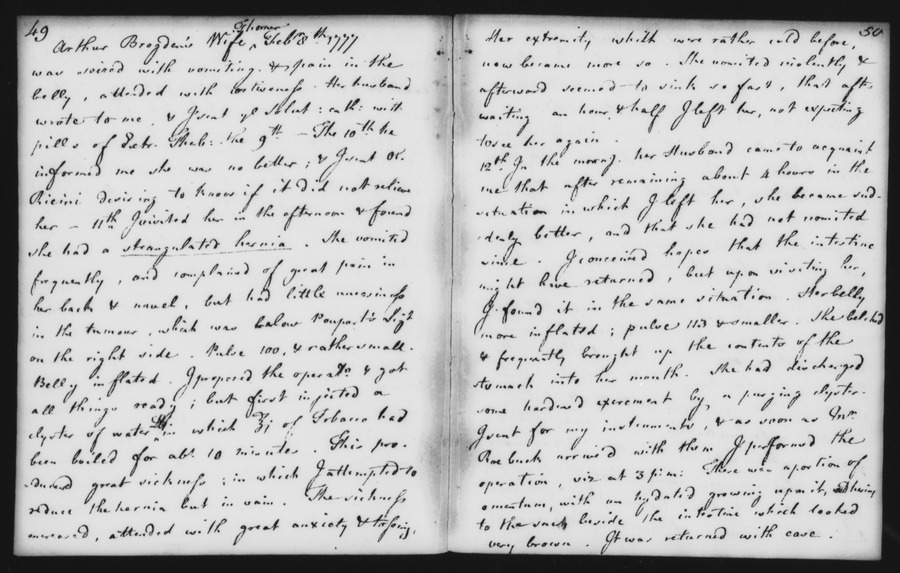 49
Arthur Brogden's Wife, Thorner Feb: 8th 1777
was seized with vomiting & pain in the
belly, attended with costiveness. Her husband
wrote to me, & I sent ye Solut: cath: with
pills of Extr. Theb: the 9th — The 10th he
informed me she was no better; & I sent Ol.
Ricini desiring to know if it did not relieve
her — 11th I visited her in the afternoon & found
she had a strangulated hernia. She vomited
frequently, and complained of great pain in
her back & navel, but had little uneasiness
in the tumour, which was below Poupart's Ligt
on the right side. Pulse 100, & rather small.
Belly inflated. I proposed the operatn & got
all things ready; but first injected a
clyster of water in which ʒj of Tobacco had
been boiled for abt. 10 minutes. This pro-
duced great sickness; in which I attempted to
reduce the hernia but in vain. The sickness
increased, attended with great anxiety & tossing,
50
Her extremity which were rather cold before,
now became more so. She vomited violently &
afterward seemed to sink so fast, that after
waiting an hour & half I left her, not expecting
to see her again.
12th In the morng. her Husband came to acquaint
me that after remaining about 4 hours in the
situation in which I left her, she became sud-
denly better, and that she had not vomited
since. I conceived hopes that the intestine
might have returned, but upon visiting her,
I found it in the same situation. Her belly
more inflated; pulse 113 & smaller. She belched
& frequently brought up the contents of the
stomach into her mouth. She had discharged
some hardened excrement by a purging clyster.
I sent for my instruments, & as soon as Mr.
Roebuck arrived with them I performed the
operation, viz at 3 p:m: There was a portion of
omentum, with an hydatid growing upon it, adhering
to the sack beside the intestine which looked
very brown. It was returned with ease.